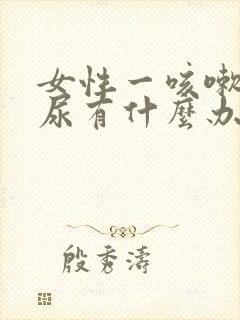 女性一咳嗽
尿有什麼办
殷秀濤